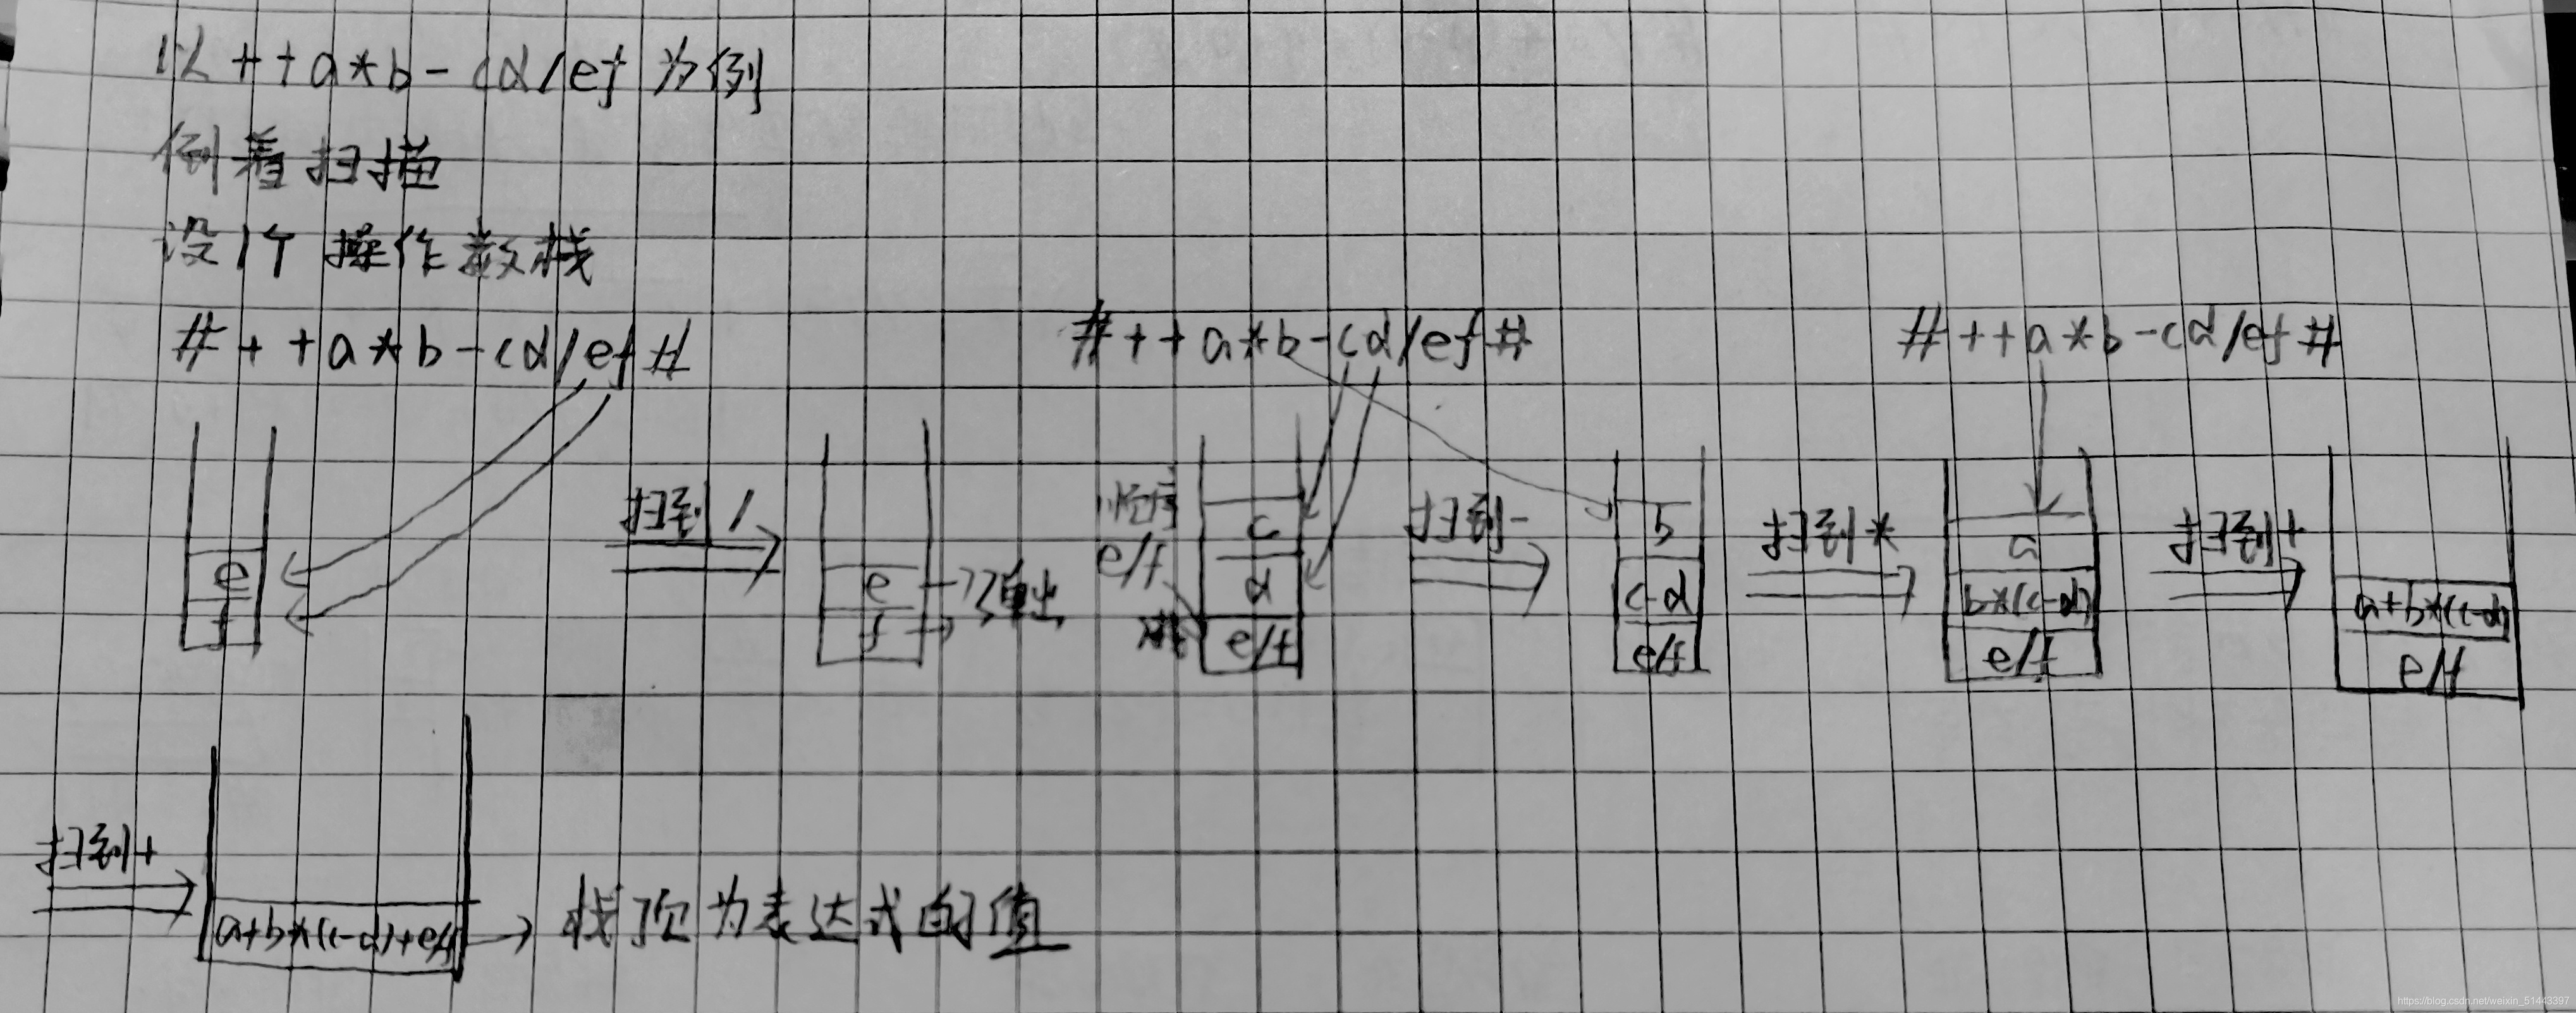 以++a*b-cd/ef为例
倒着扫描
设1个操作数栈
#++a*b-cd/ef#
#++a*b-cd/ef#
#++a*b-cd/ef#
e
f
扫到/
e
f
弹出
顺序
e/f
c
d
e/f
扫到-
b
c-d
e/f
扫到*
a
b*(c-d)
e/f
扫到+
a+b*(c-d)
e/f
扫到+
a+b*(c-d)+e/f
栈顶为表达式的值
https://blog.csdn.net/weixin_51443397